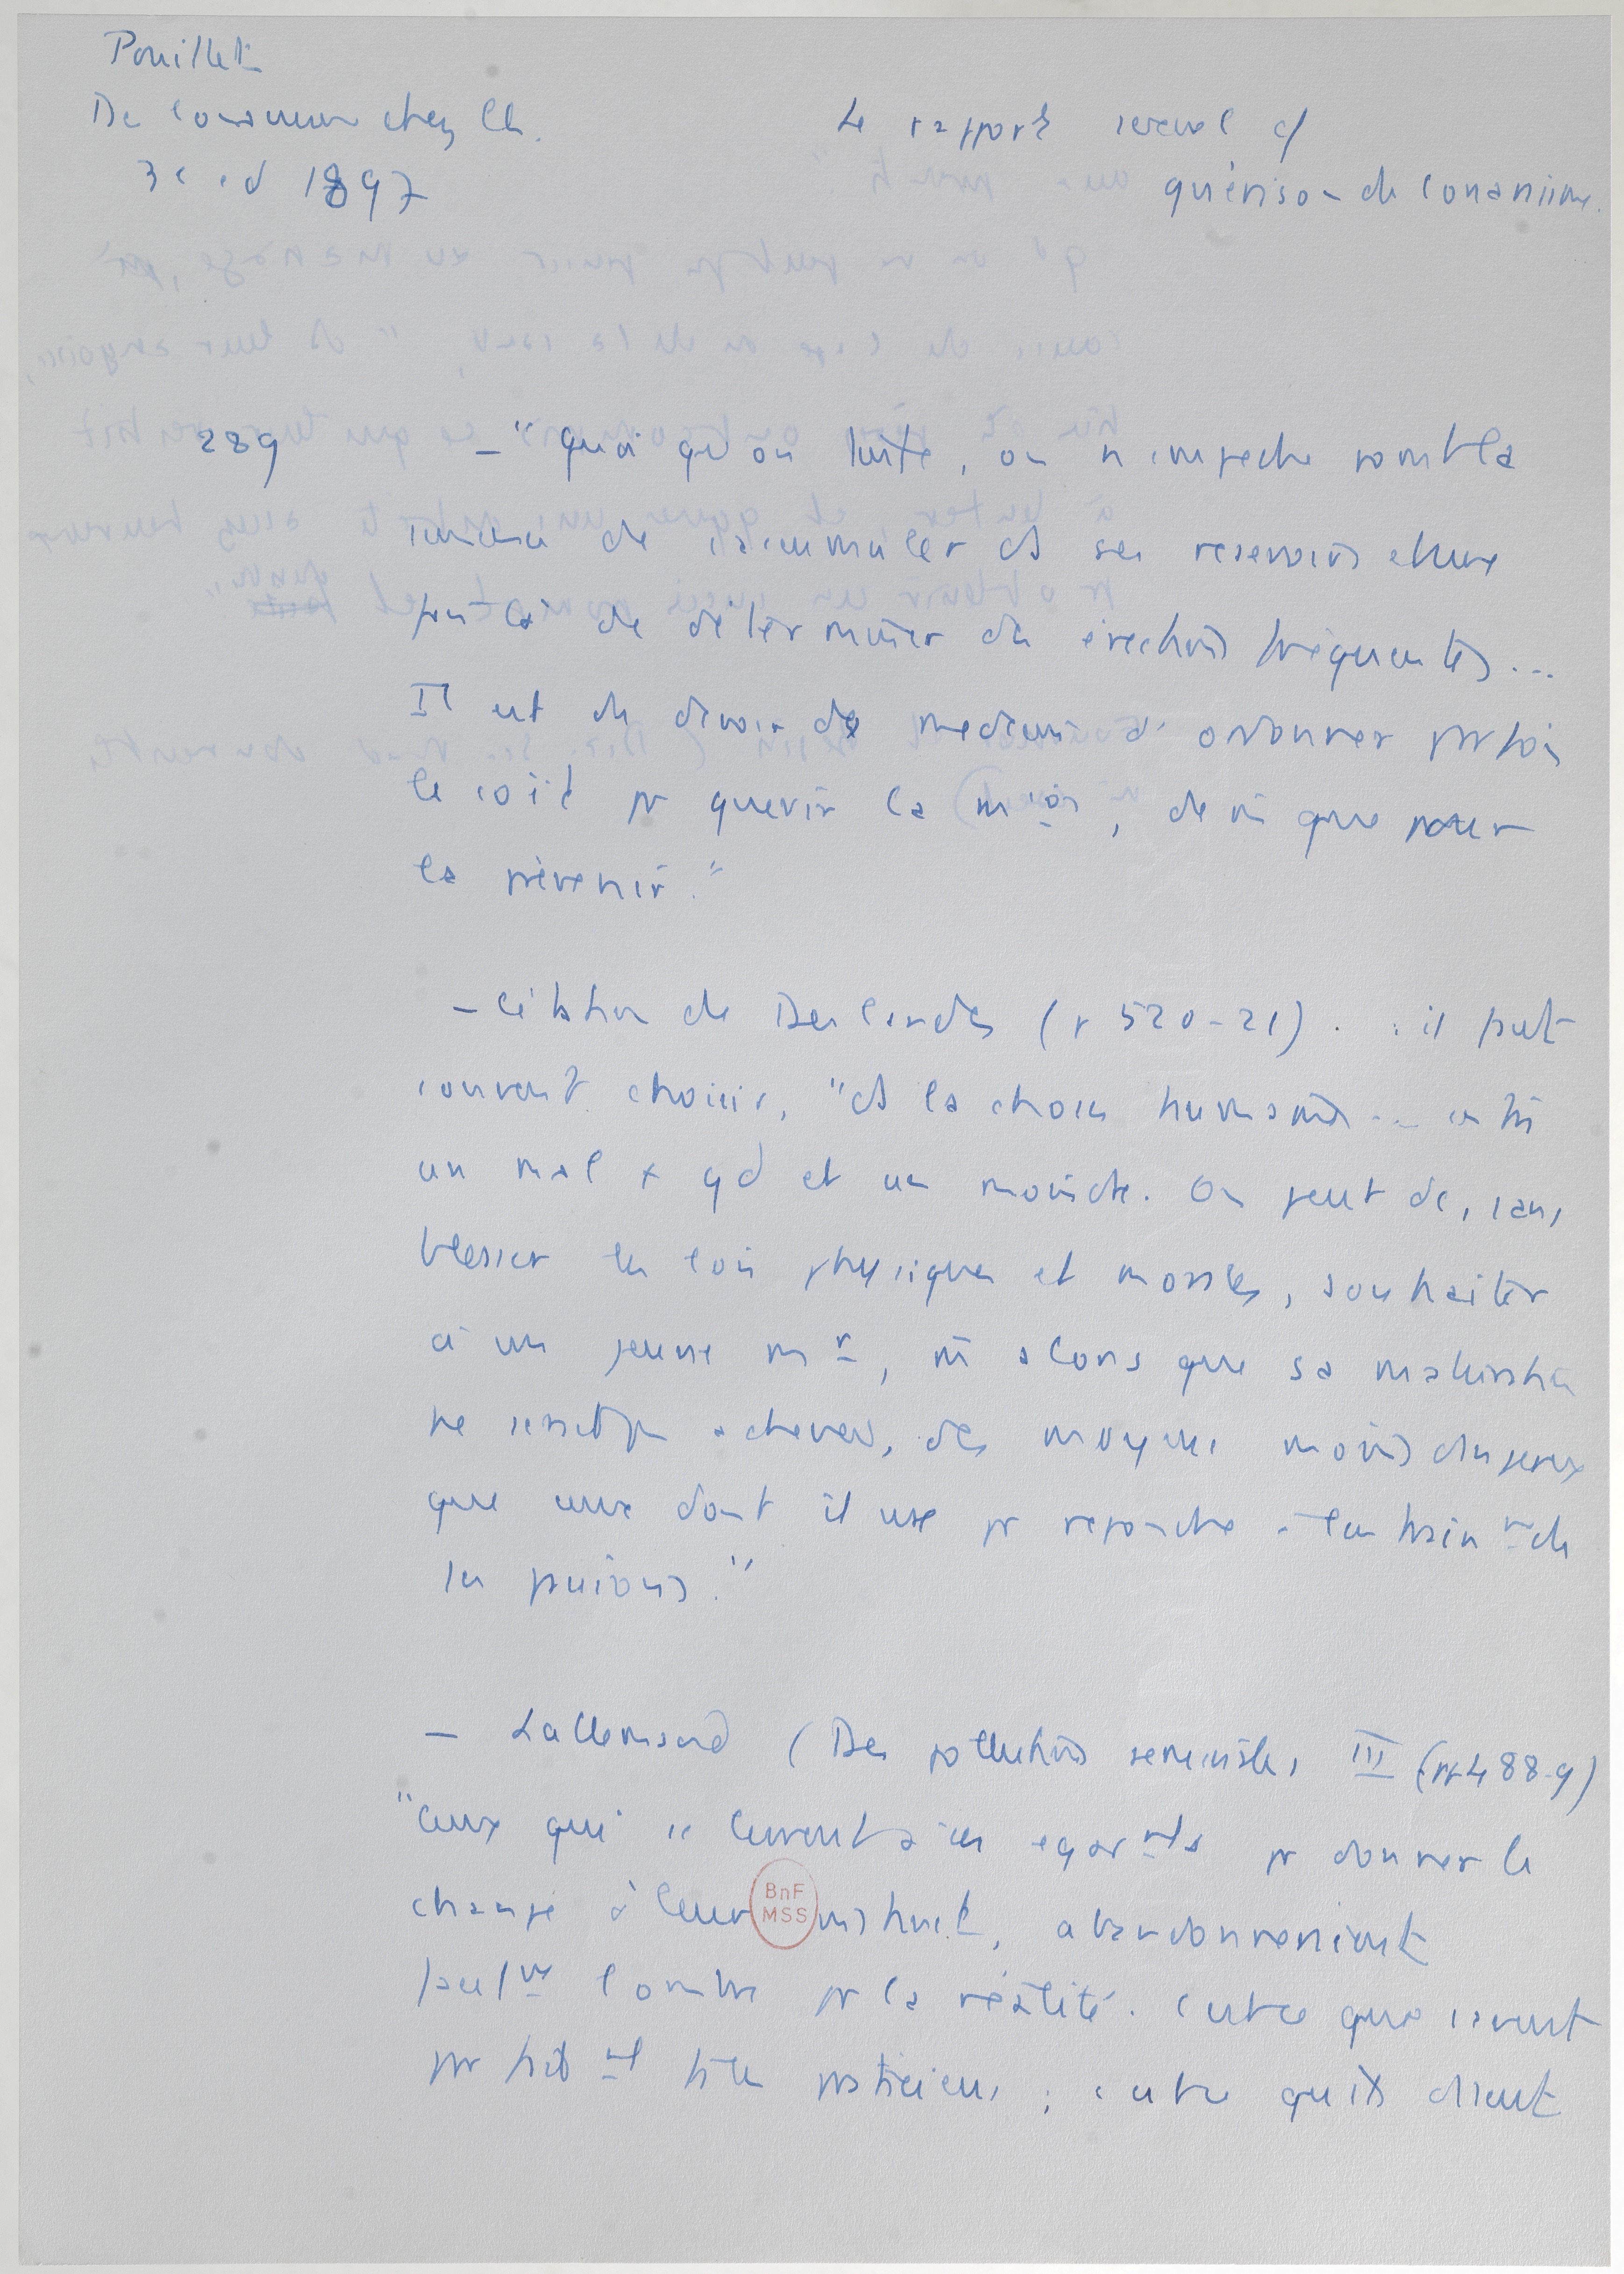 Pouillet
De l'onanisme chez l'h.
3e ed 1897
Le rapport sexuel c/
guérison de l'onanisme.
289 – "Quoi qu'on fasse, on n'empeche point la
semence de s'accumuler ds ses reservoirs et une
fois là de déterminer des érections fréquentes...
Il est du devoir des medecins d'ordonner parfois
le coït pr guerir la m.on, de m que pour
la prévenir."
– Citation de Deslandes (p 520-21). : il faut
souvent choisir, "ds les choses humaines ... entre
un mal + gd et un moindre. On peut dc, sans
blesser les lois physiques et morales, souhaiter
à un jeune mr, m alors que sa maturation
ne serait pas achevée, des moyens moins dangereux
que ceux dont il use pr repondre à l'entrainmt de
ses passions."
– Lallemand (Des pollutions seminales, III (pp 488-9)
"Ceux qui se livrent à ces egarmts pr donner le
change à leur instinct, abandonneraient
facilmt l'ombre pr la réalité. C'est ce que savent
parfaitmt les praticiens ; c'est ce qu'ils disent
BnF
MSS